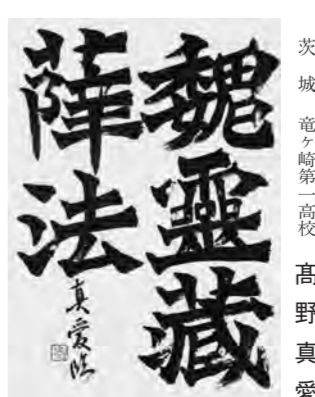 魏靈藏
薛法
真愛臨
茨城 竜ヶ崎第一高校
髙野真愛